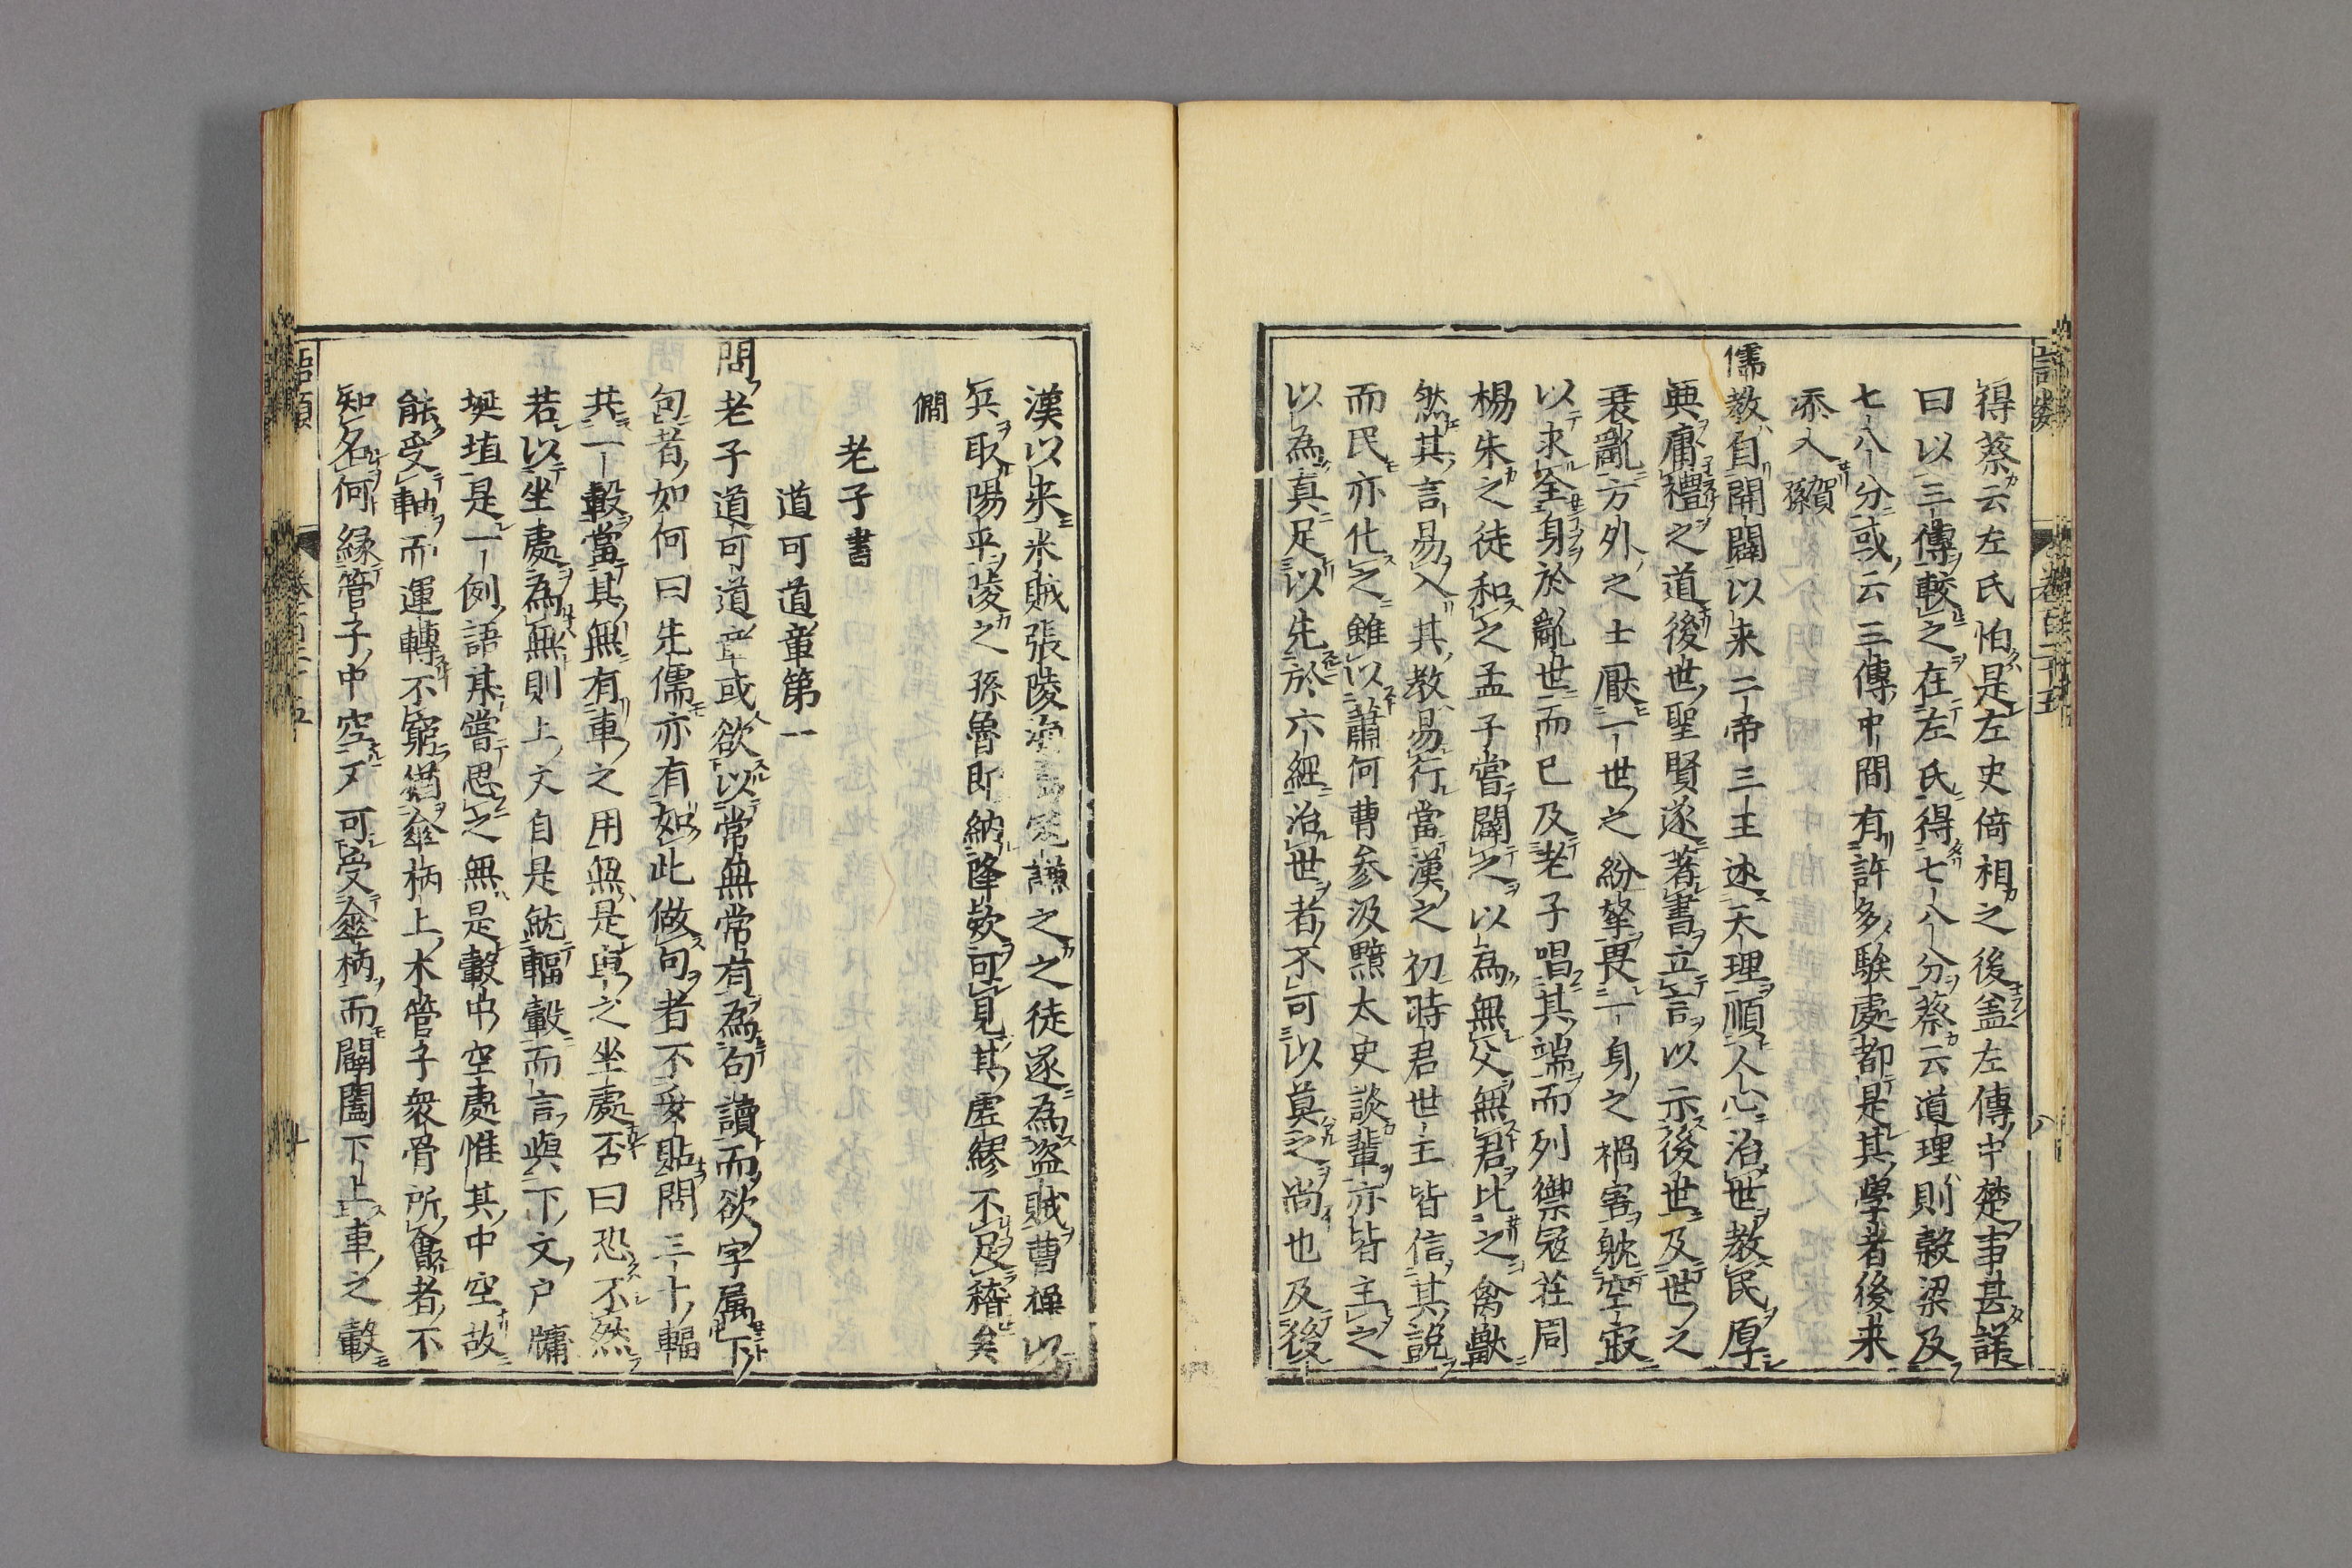 得蔡云左氏怕是左史倚相之後盖左傳中楚事甚詳
曰以三傳較之在左氏得七八分蔡云道理則穀梁及
七八分或云三傳中間有許多騃處都是其學者後来
添入賀孫
儒教自開闢以来二帝三王述天理順人心治世教民厚
典庸禮之道後世聖賢遂著書立言以示後世及世之
衰亂方外之士厭一世之紛拏畏一身之禍害耽空寂
以求全身於亂世而已及老子唱其端而列禦冦荘周
楊朱之徒和之孟子嘗闢之以為無父無君比之禽獸
然其言易入其教易行當漢之初時君世主皆信其說
而民亦化之雖以蕭何曹参汲黯太史談輩亦皆主之
以為真足以先於六經治世者不可以莫之尚也及後
漢以来米賊張陵海島冦謙之之徒遂為盗賊曹操以
兵取陽平陵之孫魯即納降欵可見其虚繆不足稽矣
僩
老子書
道可道章第一
問老子道可道章或欲以常無常有為句讀而欲字属下
句者如何曰先儒亦有如此做句者不妥貼問三十輻
共一轂當其無有車之用無是車之坐處否曰恐不然
若以坐處為無則上文自是就輻轂而言與下文戶牖
埏埴是一例語某嘗思之無是轂中空處惟其中空故
能受軸而運轉不窮猶傘柄上木管子衆骨所會者不
知名何緣管子中空又可受傘柄而闢闔下上車之轂
語類
卷百二十五
八
語類
卷百二十五
十